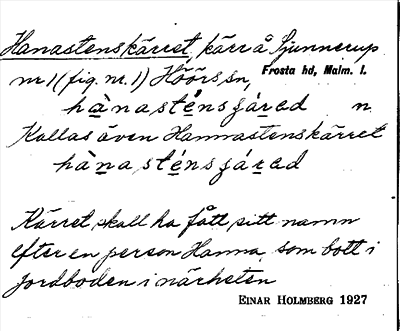 Hanastenskärret, kärr å Sjunnerup
nr 1 (fig. nr. 1) Höörs sn, Frosta hd, Malm. l.
hànasténsʃárad n.
Kallas även Hannastenskärret
hànasténsʃárad
Kärret skall ha fått sitt namn
efter en person Hanna, som bott i
jordboden i närheten
EINAR HOLMBERG 1927